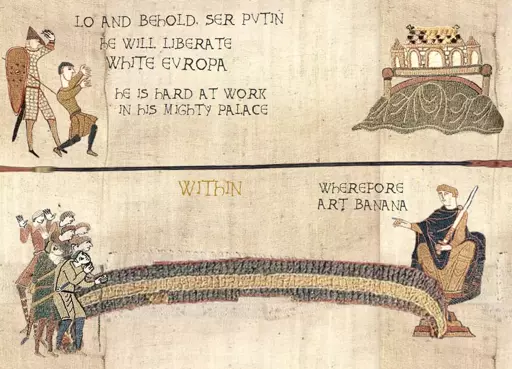 LO AND BEHOLD, SER PVTIN
HE WILL LIBERATE
WHITE EVROPA
HE IS HARD AT WORK
IN HIS MIGHTY PALACE
WITHIN
WHEREFORE
ART BANANA